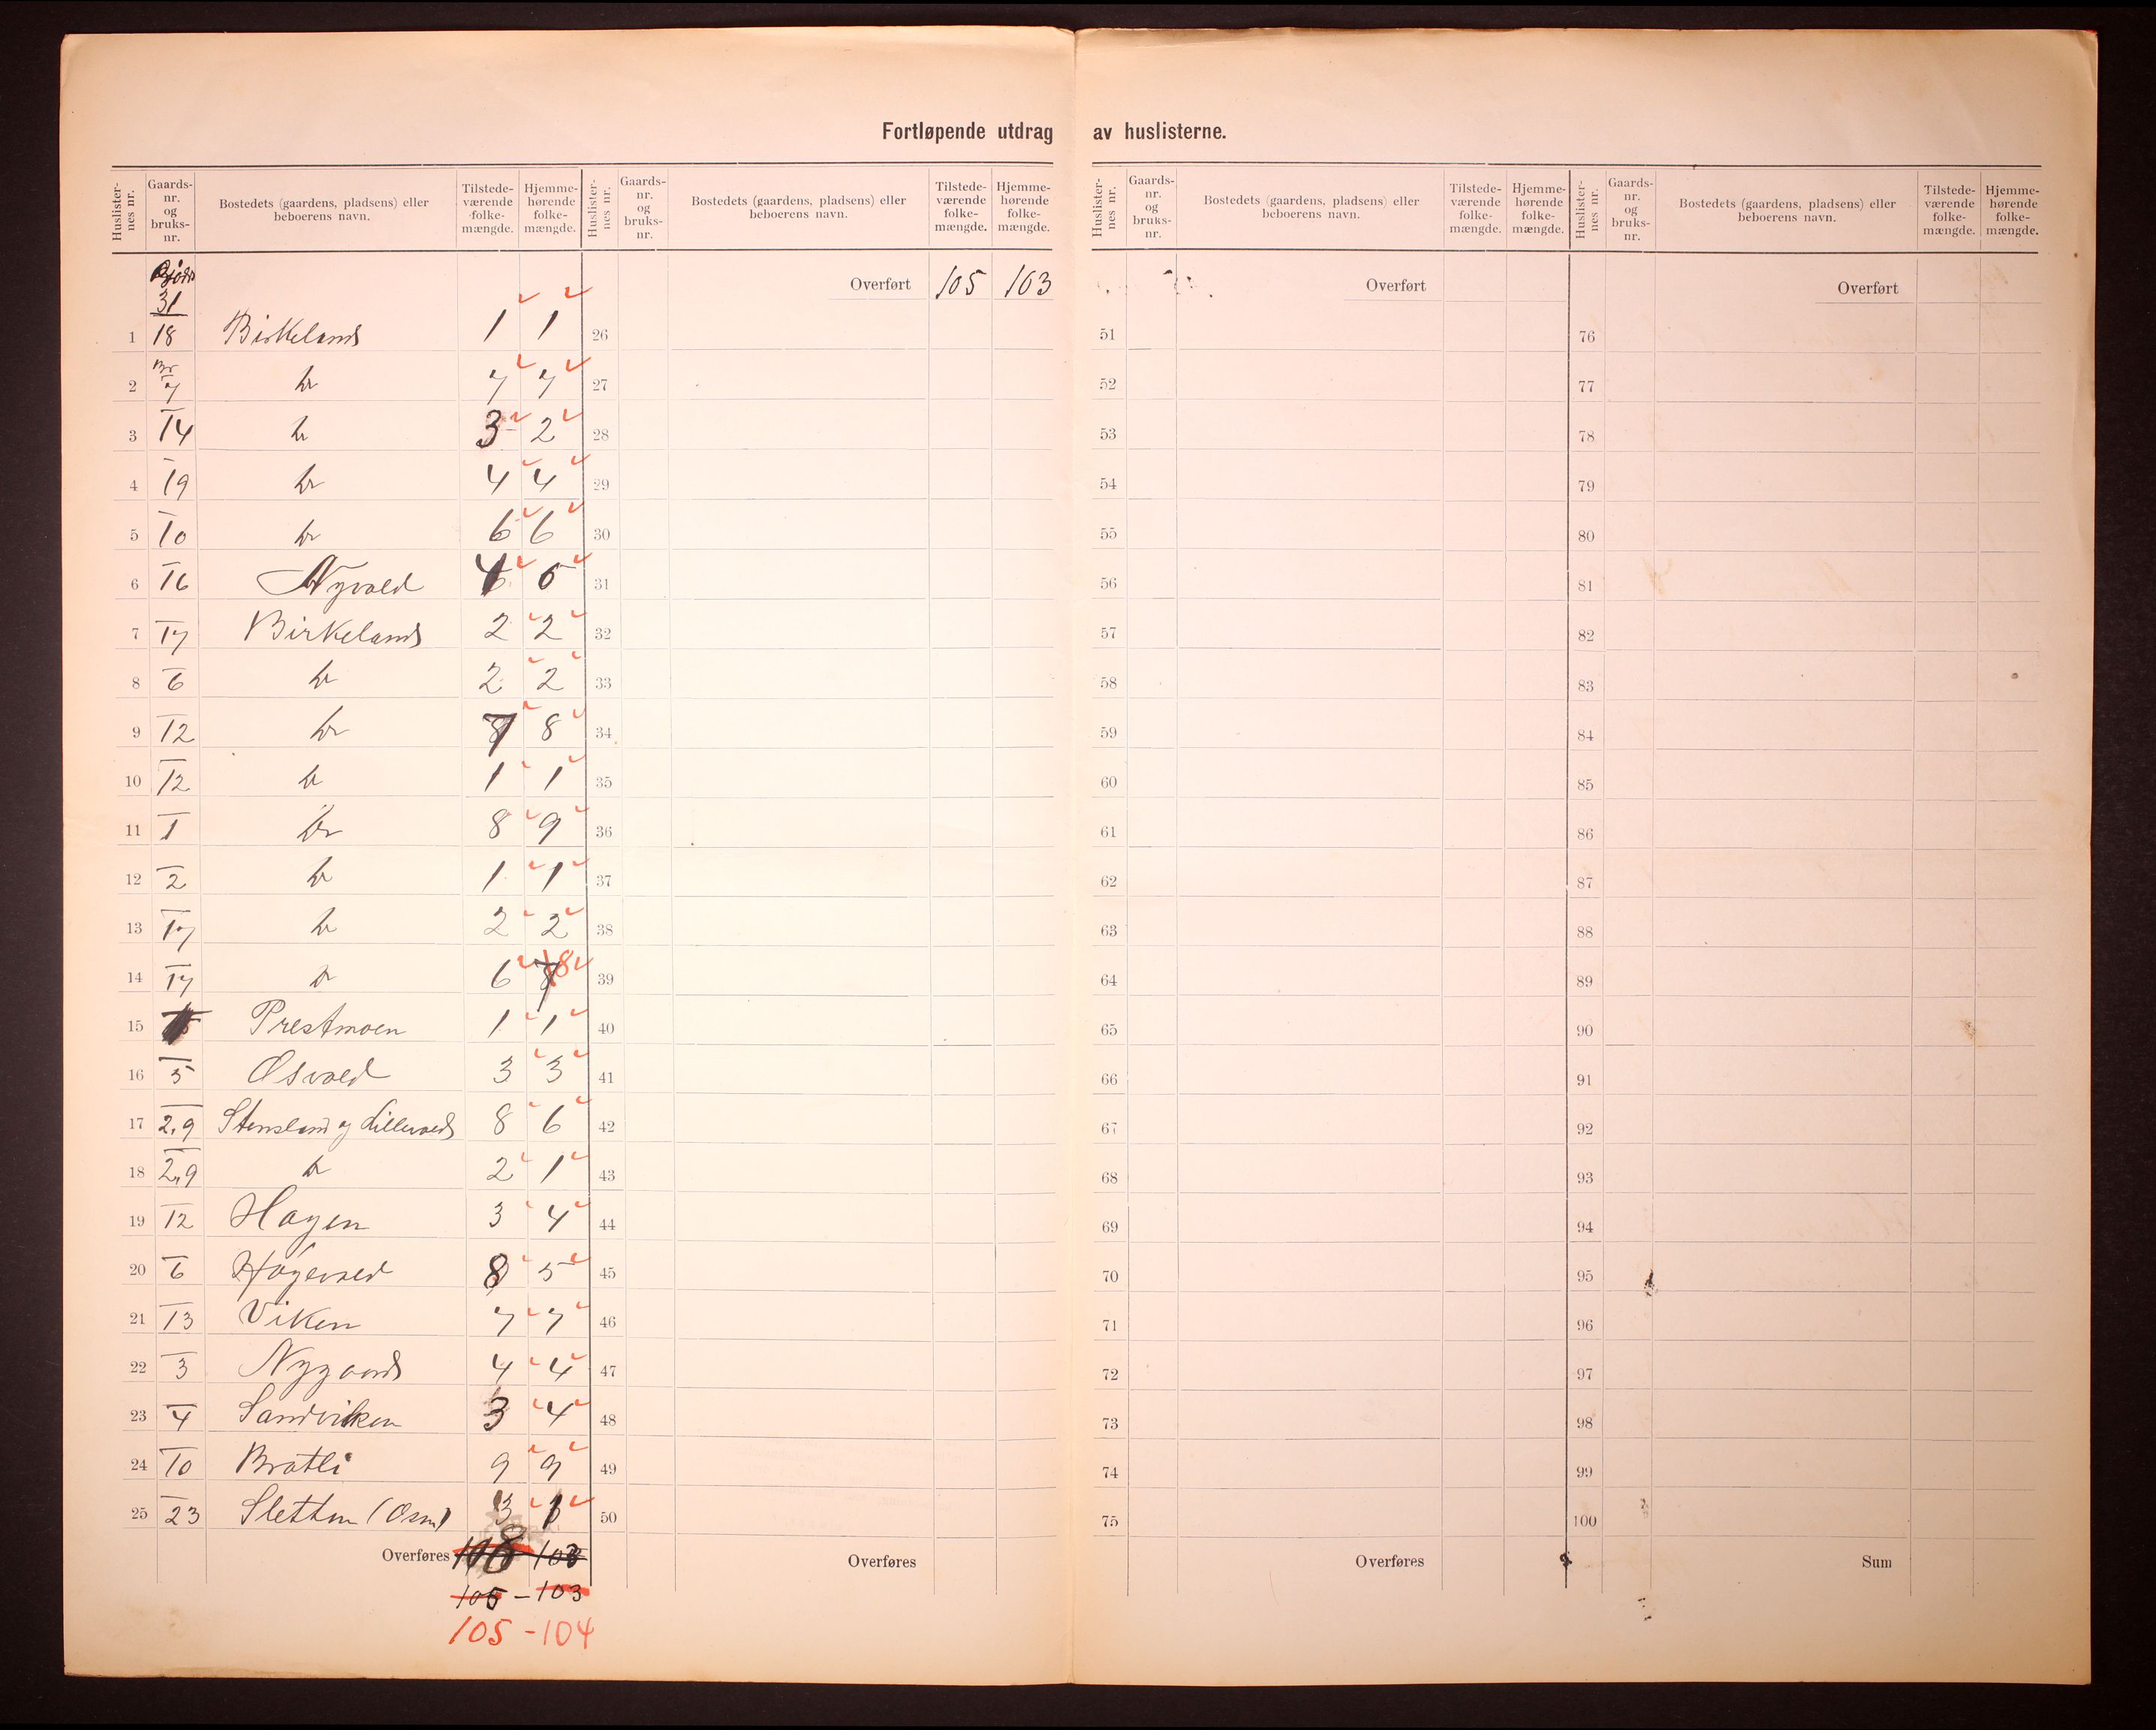 Fortløpende utdrag av huslisterne.
Huslister-nes nr. Gaards-nr. og bruks-nr. Bostedets (gaardens, pladsens) eller beboerens navn. Tilstede-værende folke-mængde. Hjemme-hørende folke-mængde.
31
1 18 Birkeland 1 1
2 7 do 7 7
3 14 do 3 2
4 19 do 4 4
5 10 do 6 6
6 16 Nyvold 4 5
7 17 Birkeland 2 2
8 6 do 2 2
9 12 do 7 8
10 12 do 1 1
11 1 do 8 9
12 2 do 1 1
13 17 do 2 2
14 17 do 6 8
15 Prestmoen 1 1
16 5 Osvold 3 3
17 2,9 Stensland og Lillevold 8 6
18 2,9 do 2 1
19 12 Hagen 3 4
20 6 Høgevold 8 5
21 13 Viken 7 7
22 3 Nygaard 4 4
23 4 Sandviken 3 4
24 10 Bratli 9 9
25 23 Sletten (Osm) 3
Overføres 108 103
105 - 103
105 - 104
Huslister-nes nr. Gaards-nr. og bruks-nr. Bostedets (gaardens, pladsens) eller beboerens navn. Tilstede-værende folke-mængde. Hjemme-hørende folke-mængde.
Overført 105 103
26
27
28
29
30
31
32
33
34
35
36
37
38
39
40
41
42
43
44
45
46
47
48
49
50
Overføres
Huslister-nes nr. Gaards-nr. og bruks-nr. Bostedets (gaardens, pladsens) eller beboerens navn. Tilstede-værende folke-mængde. Hjemme-hørende folke-mængde.
Overført
51
52
53
54
55
56
57
58
59
60
61
62
63
64
65
66
67
68
69
70
71
72
73
74
75
Overføres
Huslister-nes nr. Gaards-nr. og bruks-nr. Bostedets (gaardens, pladsens) eller beboerens navn. Tilstede-værende folke-mængde. Hjemme-hørende folke-mængde.
Overført
76
77
78
79
80
81
82
83
84
85
86
87
88
89
90
91
92
93
94
95
96
97
98
99
100
Sum